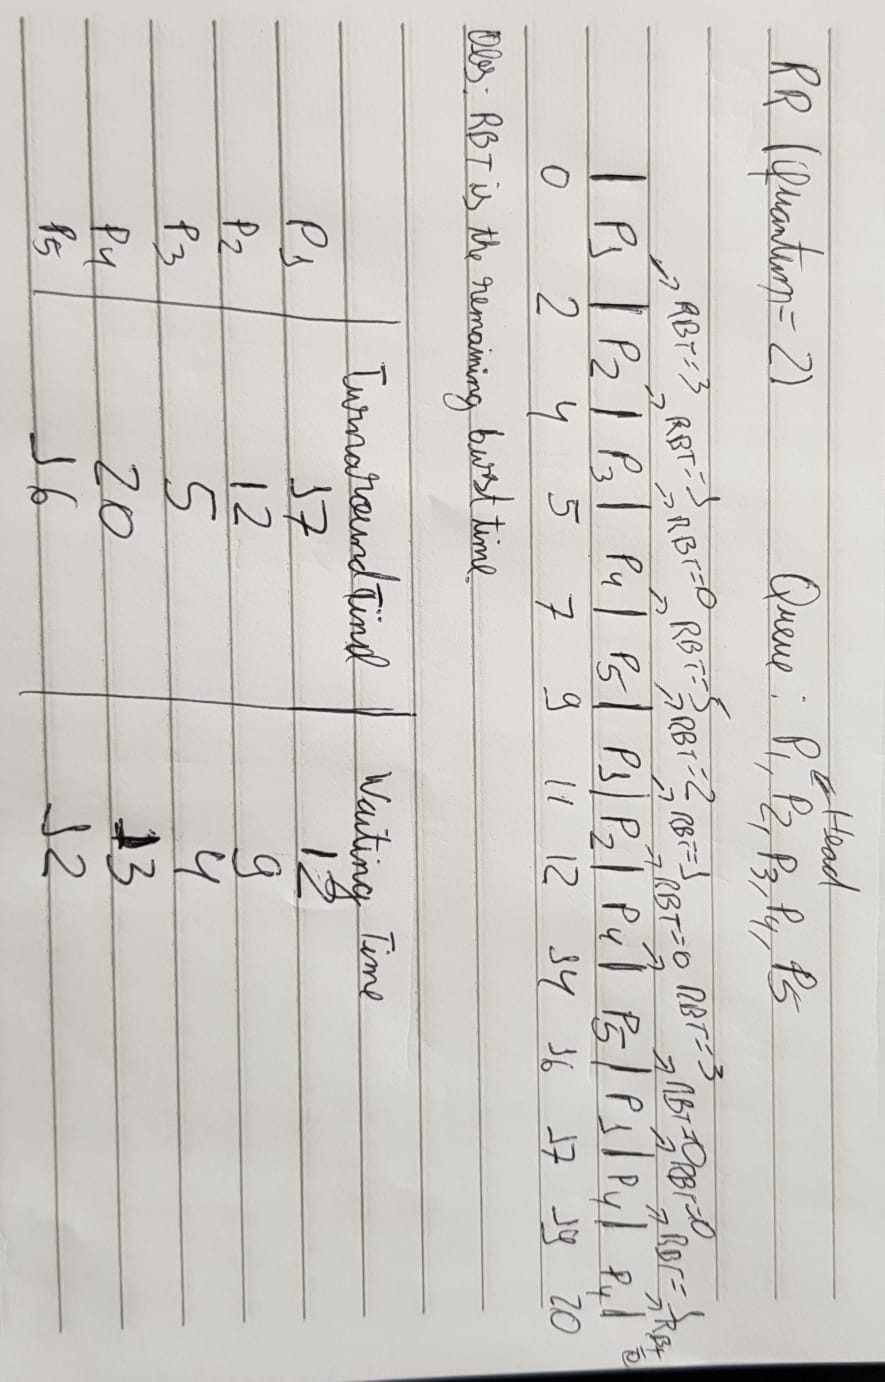 RR (Quantum = 2)
Queue: P1, P2, P3, P4, P5
Head
RBT=3 RBT=1 RBT=0 RBT=5 RBT=2 RBT=1 RBT=0 RBT=3 RBT=0 RBT=0 RBT=1 RBT=0
| P1 | P2 | P3 | P4 | P5 | P1 | P2 | P4 | P5 | P1 | P4 | P4 |
0 2 4 5 7 9 11 12 14 16 17 19 20
Obs. RBT is the remaining burst time.
Turnaround Time Waiting Time
P1 17 12
P2 12 9
P3 5 4
P4 20 13
P5 16 12